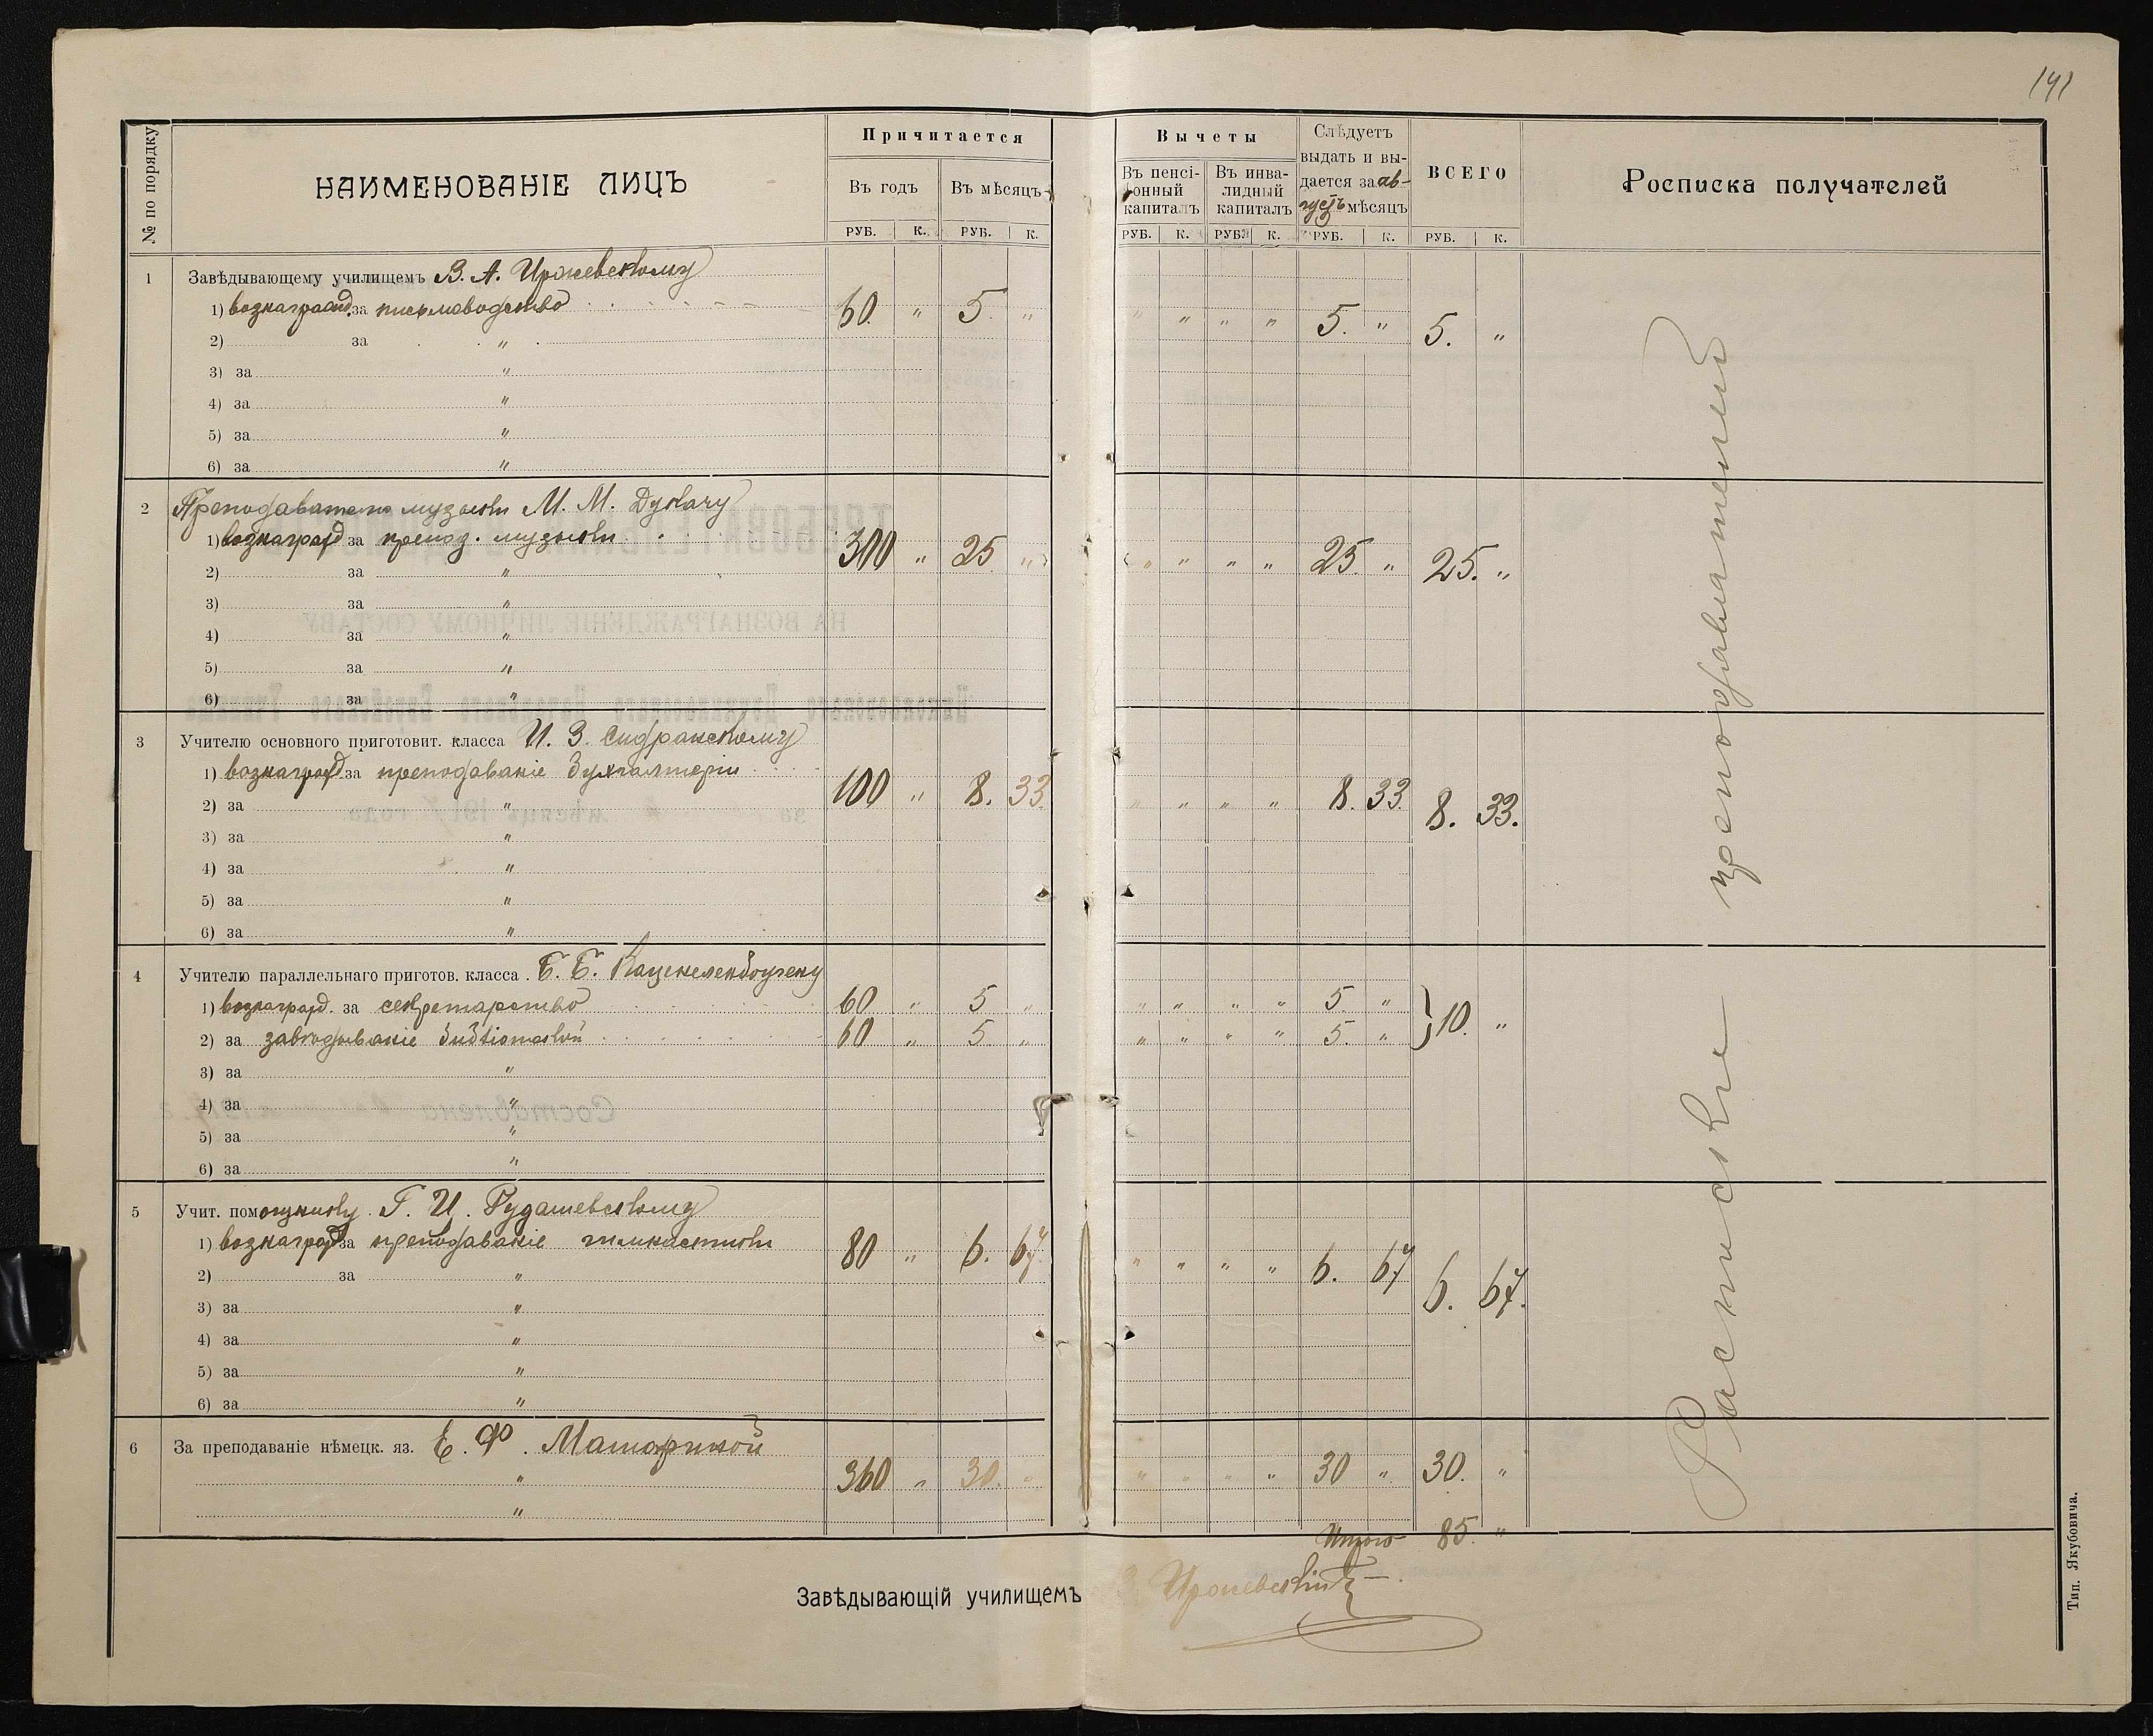 141
№ по порядку
НАИМЕНОВАНІЕ ЛИЦЪ
Причитается
Въ годъ
Въ мѣсяцъ
РУБ. К. РУБ. К.
Вычеты
Въ пенсі-
онный
капиталъ
Въ инва-
лидный
капиталъ
Слѣдуетъ
выдать и вы-
дается за ав-
густъ мѣсяцъ
ВСЕГО
Росписка получателей
РУБ. К. РУБ. К. РУБ. К. РУБ. К.
1 Завѣдывающему училищемъ В. А.
1) вознагражд. за письмоводство 60. " 5. " " " " " 5. " 5. "
2) за "
3) за "
4) за "
5) за "
6) за "
2 Преподавателю музыки М. М. Дукачу
1) вознагражд за препод. музыки 300 " 25 " " " " " 25. " 25. "
2) за "
3) за "
4) за "
5) за "
6) за "
3 Учителю основного приготовит. класса И. З. Сидранскому
1) вознагражд. за преподаваніе бухгалтеріи 100 " 8. 33. " " " " 8. 33. 8. 33.
2) за "
3) за "
4) за "
5) за "
6) за "
4 Учителю параллельнаго приготов. класса. Б. Б. Каценеленбогену
1) вознагражд. за секретарство 60 " 5 " " " " " 5. " } 10. "
2) за завѣдываніе библіотекой 60 " 5 " " " " " 5. "
3) за "
4) за "
5) за "
6) за "
5 Учит. помощнику Г. И. Рудашевскому
1) вознагражд за преподаваніе гимнастики 80 " 6. 67. " " " " 6. 67 6. 67.
2) за "
3) за "
4) за "
5) за "
6) за "
6 За преподаваніе нѣмецк. яз. Е. Ф.
" 360 " 30. " " " " " 30 " 30. "
"
Итого 85. "
Завѣдывающій училищемъ
Росписки преподавателей
Тип. Якубовича.